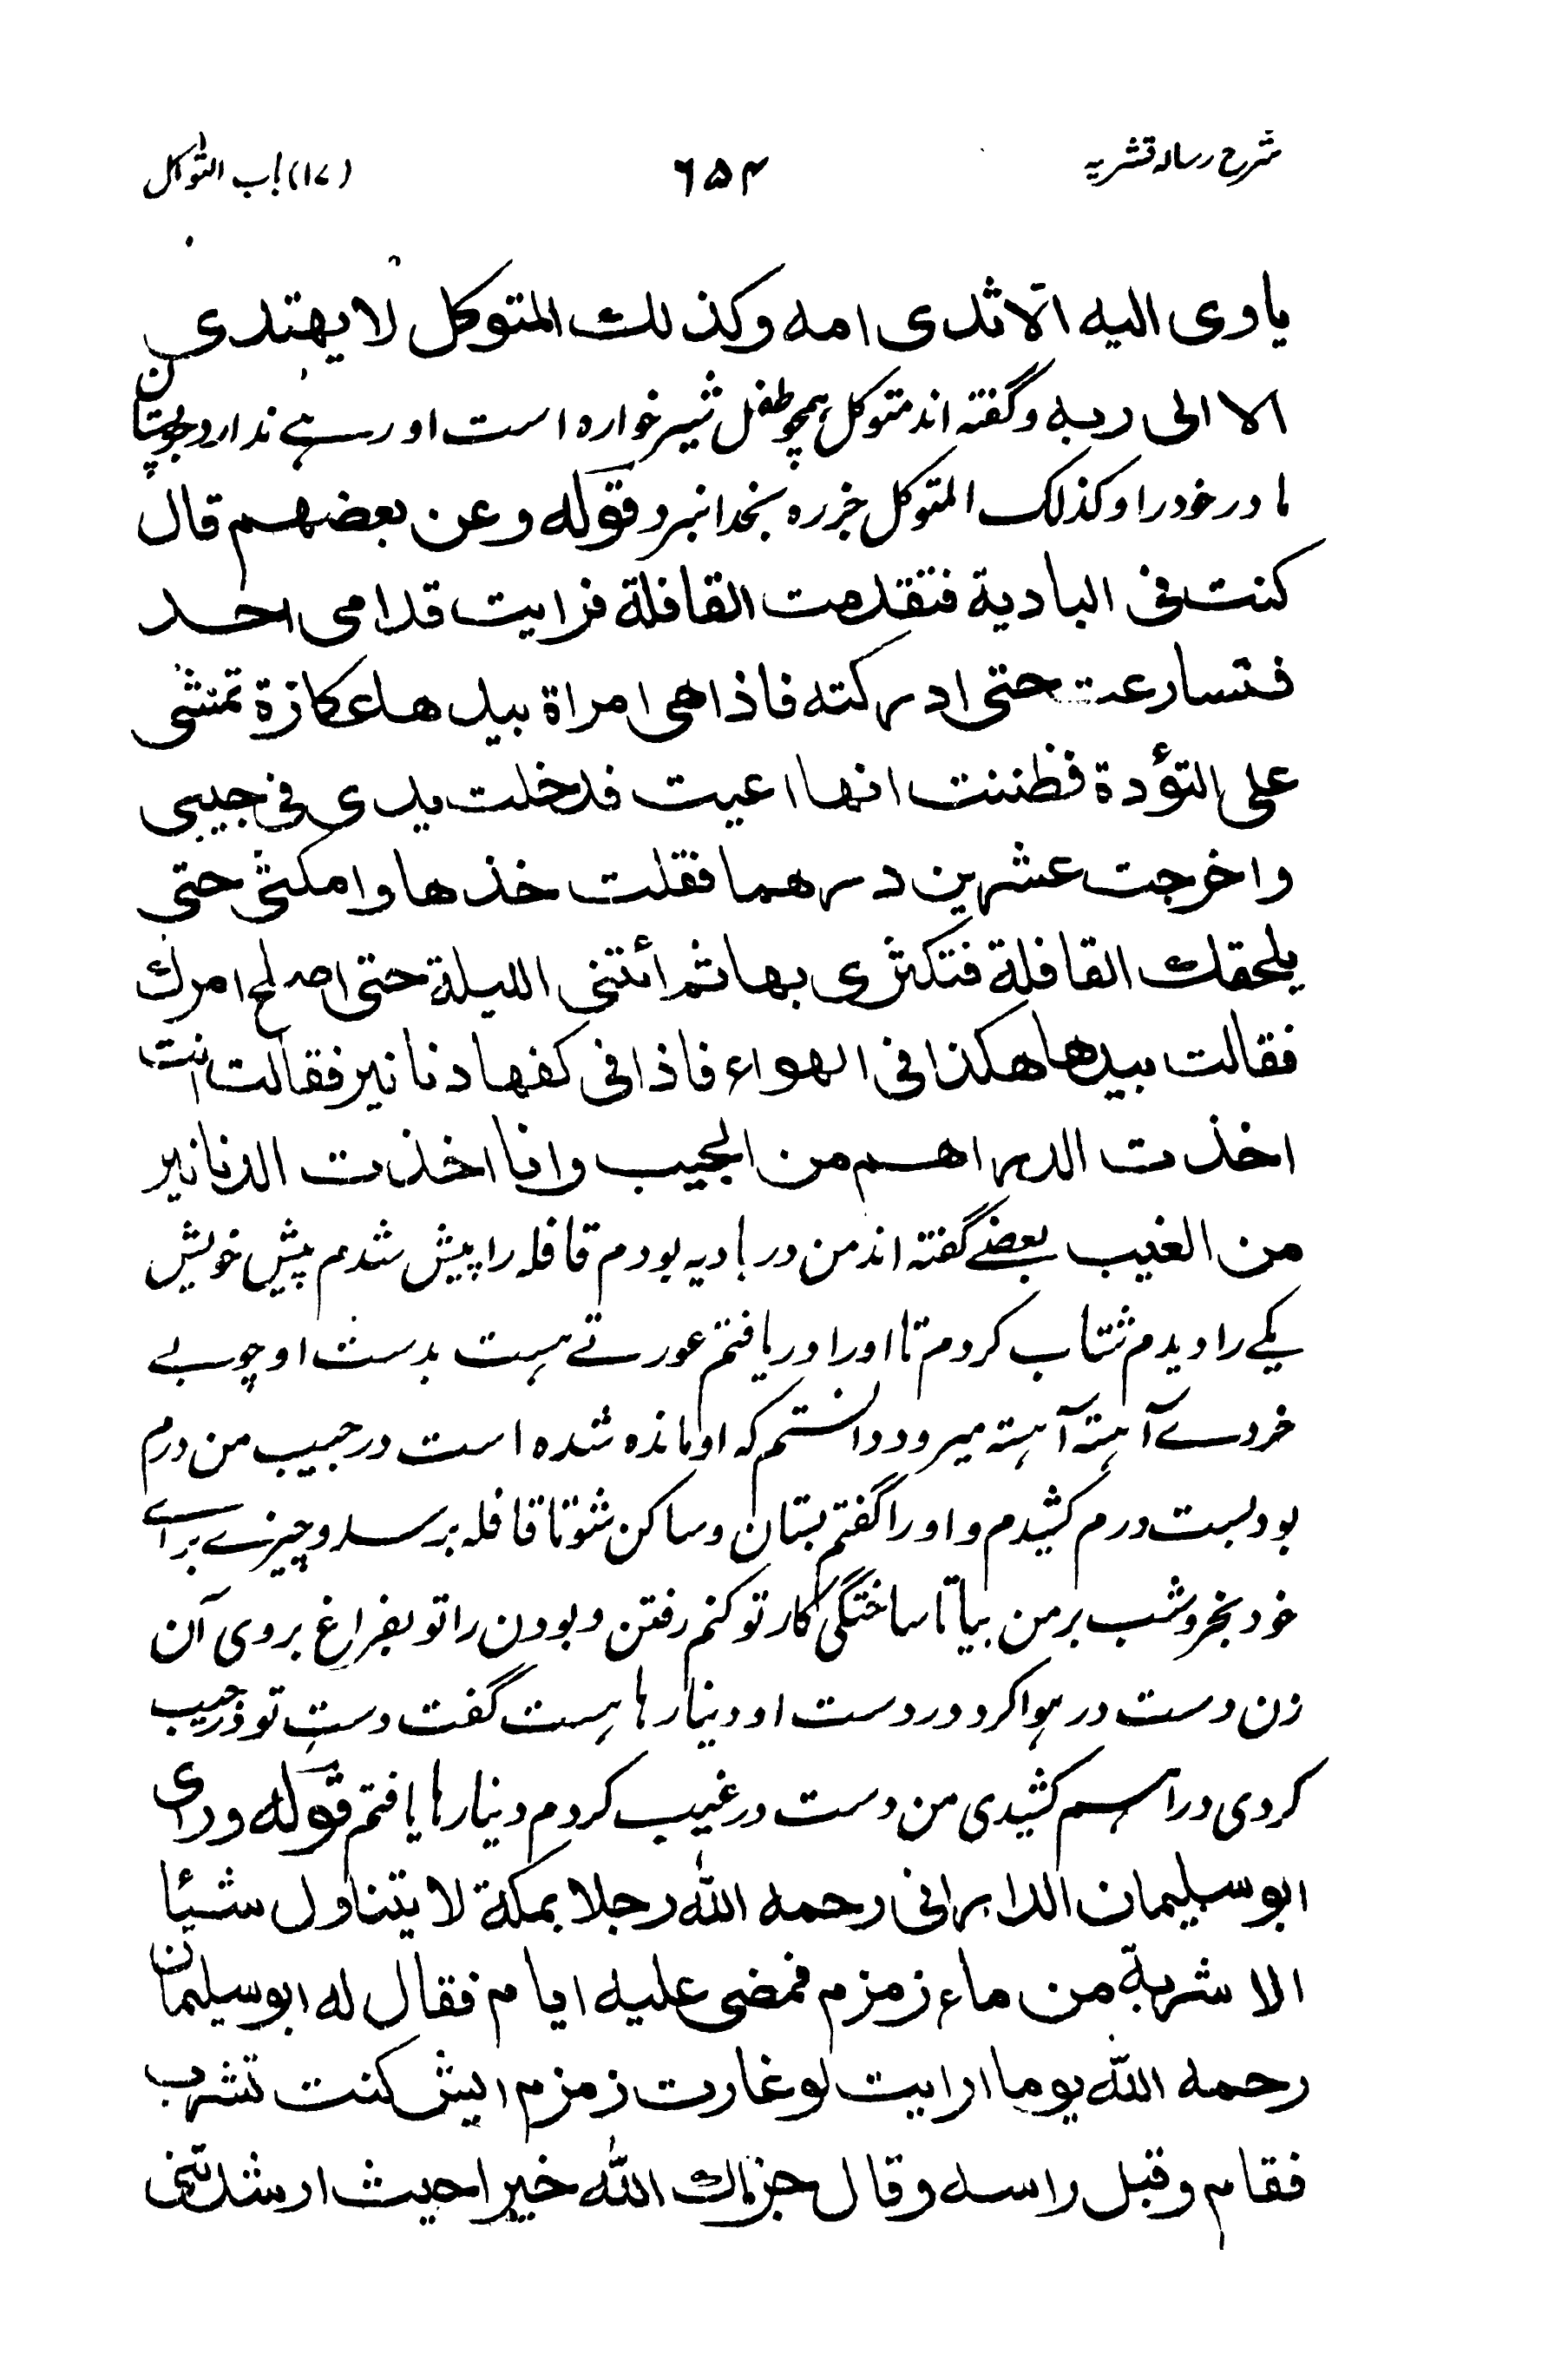 شرح رسالہ قشیریہ ۶۵۴ (۱۷) باب التوکل
یاوی الیه الّا ثدی امه وکذلك المتوکل لا یهتدی
الا الی ربه وگفته اند متوکل همچو طفل شیر خواره است او رهے ندارد بجز پستان
مادر خود را وکذلک المتوکل جز ره بخدا نبرد قوله وعن بعضهم قال
کنت فی البادیة فتقدمت القافلة فرایت قدامی احد
فتسارعت حتی ادرکته فاذا هی امراة بیدها عکازة تمشی
علی التؤدة فظننت انها اعیت فادخلت یدی فی جیبی
واخرجت عشرین درهما فقلت خذها وامکثی حتی
یلحقك القافلة فتکتری بها ثم ائتنی اللیلة حتی اصلح امرك
فقالت بیدها هکذا فی الهواء فاذا فی کفها دنانیر فقالت انت
اخذت الدراهم من الجیب وانا اخذت الدنانیر
من الغیب بعضے گفته اند من در بادیه بودم قافله را پیش شدم پیش خویش
یکے را دیدم شتاب کردم تا او را دریافتم عورتے هست بدست او چوبے
خردے آهسته آهسته میرود دانستم که او مانده شده است در جیب من درم
بود بست درم کشیدم و او را گفتم بستان و ساکن شو تا قافله برسد و چیزے براے
خود بخر و شب بر من بیا تا ساختگی کار تو کنم رفتن و بودن را تو بفراغ بروی آن
زن دست در هوا کرد در دست او دینارها هست گفت دست تو در جیب
کردی دراهم کشیدی من دست در غیب کردم دینارها یافتم قوله ورای
ابو سلیمان الدارانی رحمه الله رجلا بمکة لا یتناول شیئا
الا شربة من ماء زمزم فمضی علیه ایام فقال له ابو سلیمان
رحمه الله یوما ارایت لو غارت زمزم ایش کنت تشرب
فقام وقبل راسه وقال جزاك الله خیرا حیث ارشدتنی